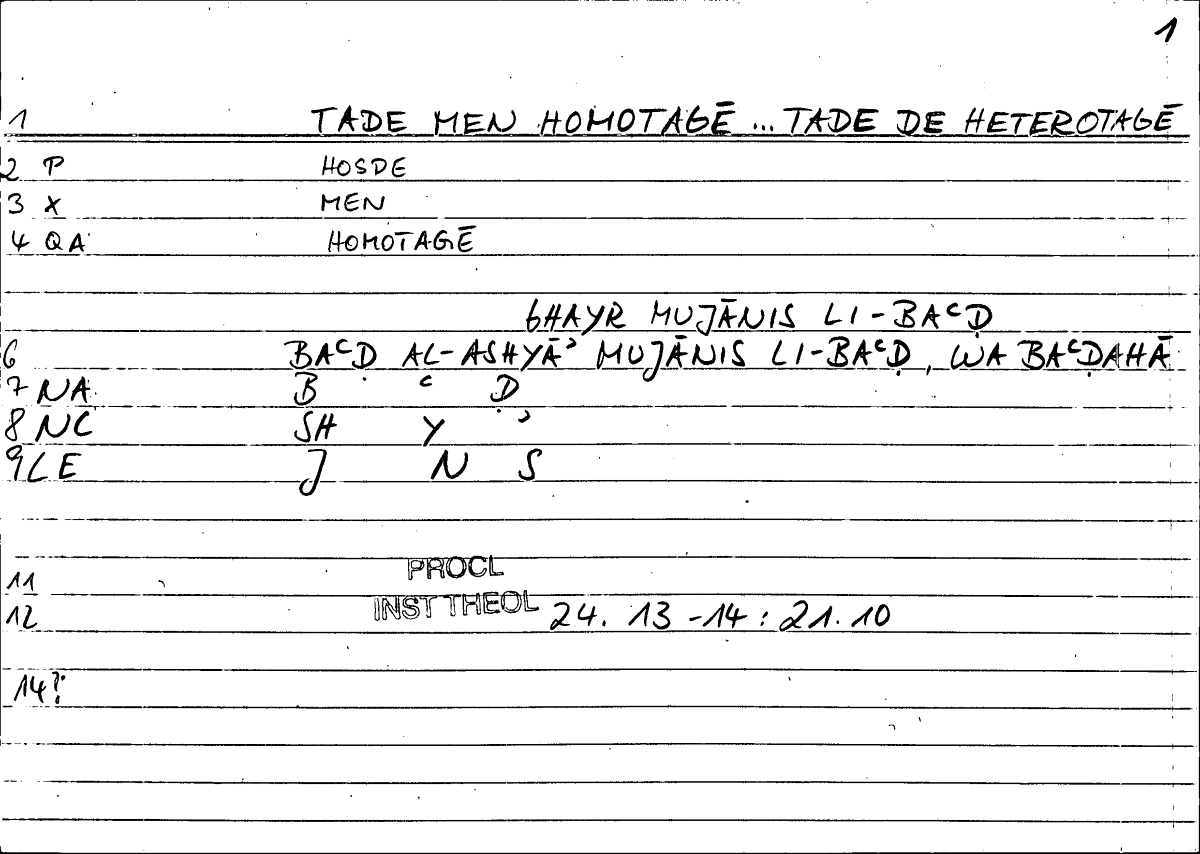 1
1 TADE MEN HOMOTAGĒ ... TADE DE HETEROTAGĒ
2 P HOSDE
3 X MEN
4 QA HOMOTAGĒ
GHAYR MUJĀNIS LI-BAᶜḌ
6 BAᶜḌ AL-ASHYĀʾ MUJĀNIS LI-BAᶜḌ, WA BAᶜḌAHĀ
7 NA B ᶜ Ḍ
8 NC SH Y ʾ
9 LE J N S
11 PROCL
12 INST THEOL 24. 13-14 : 21.10
14?